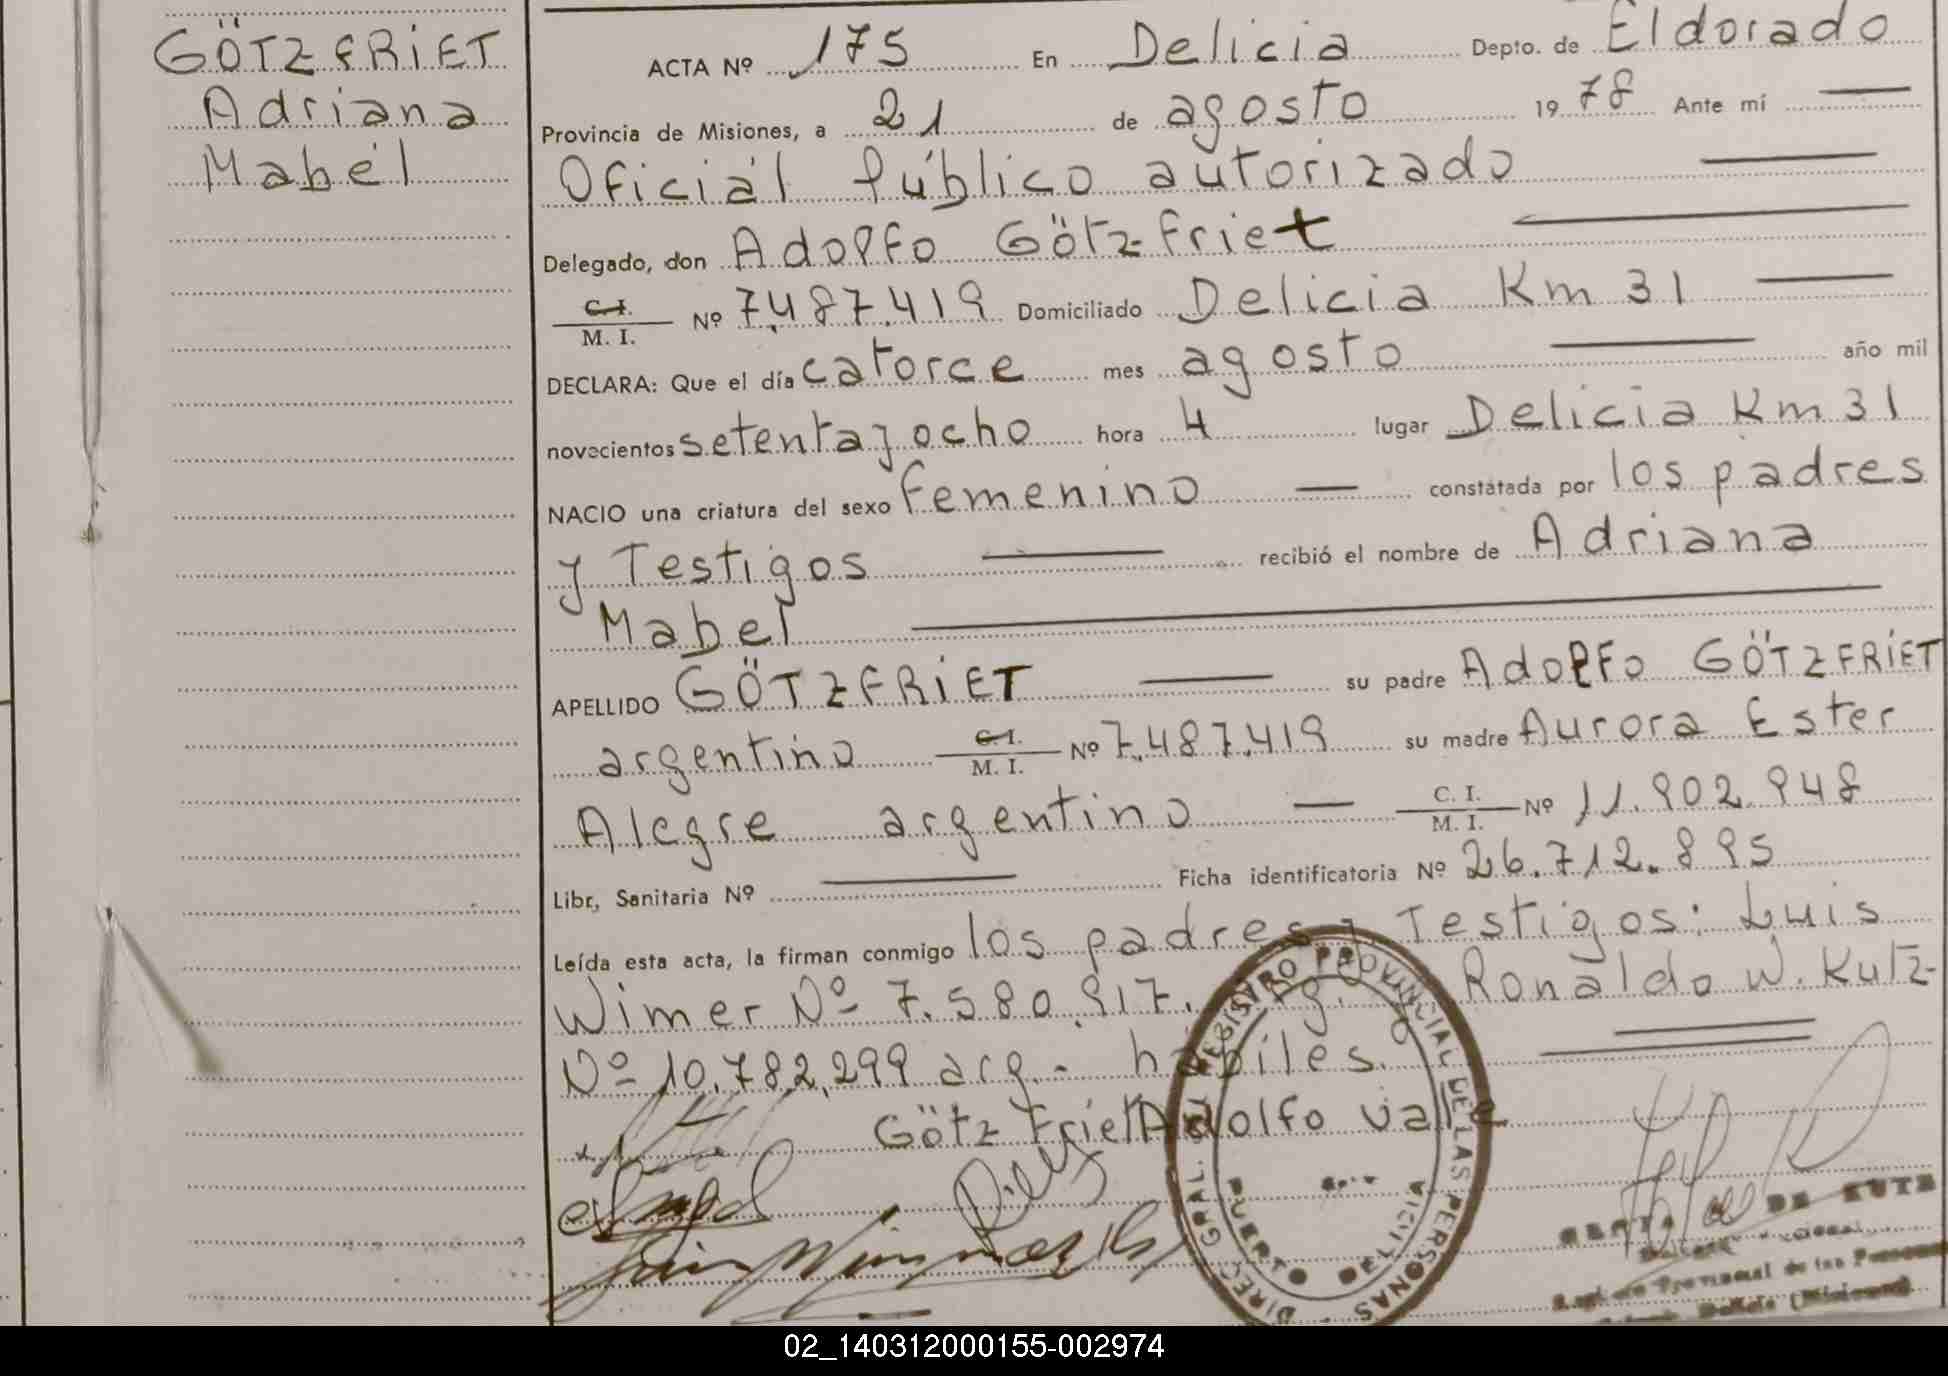 GÖTZFRIET
Adriana
Mabel
ACTA Nº 175 En Delicia Depto. de Eldorado
Provincia de Misiones, a 21 de agosto 1978 Ante mí
Oficial Público autorizado
Delegado, don Adolfo Götzfriet
C.I. M. I. Nº 7.487.419 Domiciliado Delicia Km 31
DECLARA: Que el día catorce mes agosto año mil
novecientos setenta y ocho hora 4 lugar Delicia Km 31
NACIO una criatura del sexo femenino constatada por los padres
y Testigos recibió el nombre de Adriana
Mabel
APELLIDO GÖTZFRIET su padre Adolfo GÖTZFRIET
argentino C.I. M. I. Nº 7.487.419 su madre Aurora Ester
Alegre argentino C. I. M. I. Nº 11.902.948
Libr, Sanitaria Nº Ficha identificatoria Nº 26.712.895
Leída esta acta, la firman conmigo los padres y Testigos: Luis
Wimer Nº 7.580.917. Ronaldo W. Kutz
Nº 10.782.299 arg.- hábiles.
Götzfriet Adolfo vale
DIREC. GRAL. DEL REGISTRO PROVINCIAL DE LAS PERSONAS
DELICIA
DE KUTZ
Registro Provincial de las Personas
Delicia (Misiones)
02_140312000155-002974